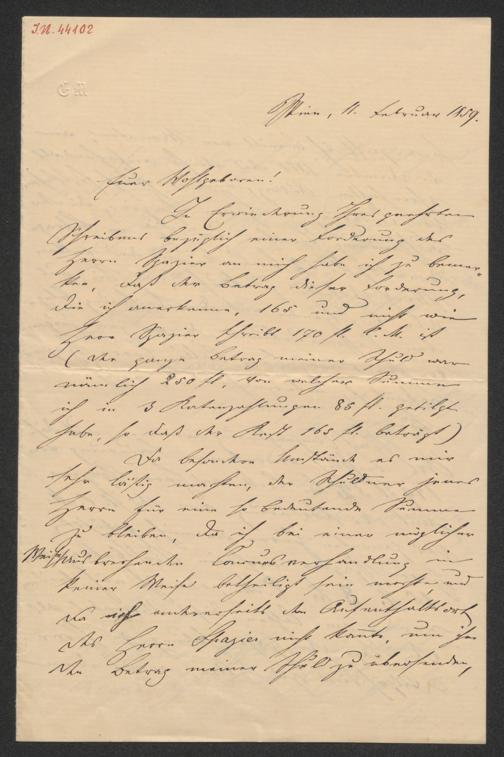 I.N. 44102
Wien, 11. Februar 1859.
Euer Wohlgeboren!
In Erwiederung Ihres geehrten
Schreibens bezüglich einer Forderung des
Herrn Spazier an mich habe ich zu bemer-
ken, daß der Betrag dieser Forderung,
die ich anerkenne, 165 und nicht wie
Herr Spazier schreibt 170 fl. C.M. ist
(der ganze Betrag meiner Schuld war
nämlich 250 fl, von welcher Summe
ich in 3 Ratenzahlungen 85 fl. getilgt
habe, so daß der Rest 165 fl. beträgt)
Da besondere Umstände es mir
sehr lästig machten, der Schuldner jenes
Herrn für eine so bedeutende Summe
zu bleiben, da ich bei einer möglicher
Weise ausbrechenden Concursverhandlung in
keiner Weise betheiligt sein mochte, und
da ich andererseits den Aufenthaltsort
des Herrn Spazier nicht kannte, um ihm
den Betrag meiner Schuld zu übersenden,